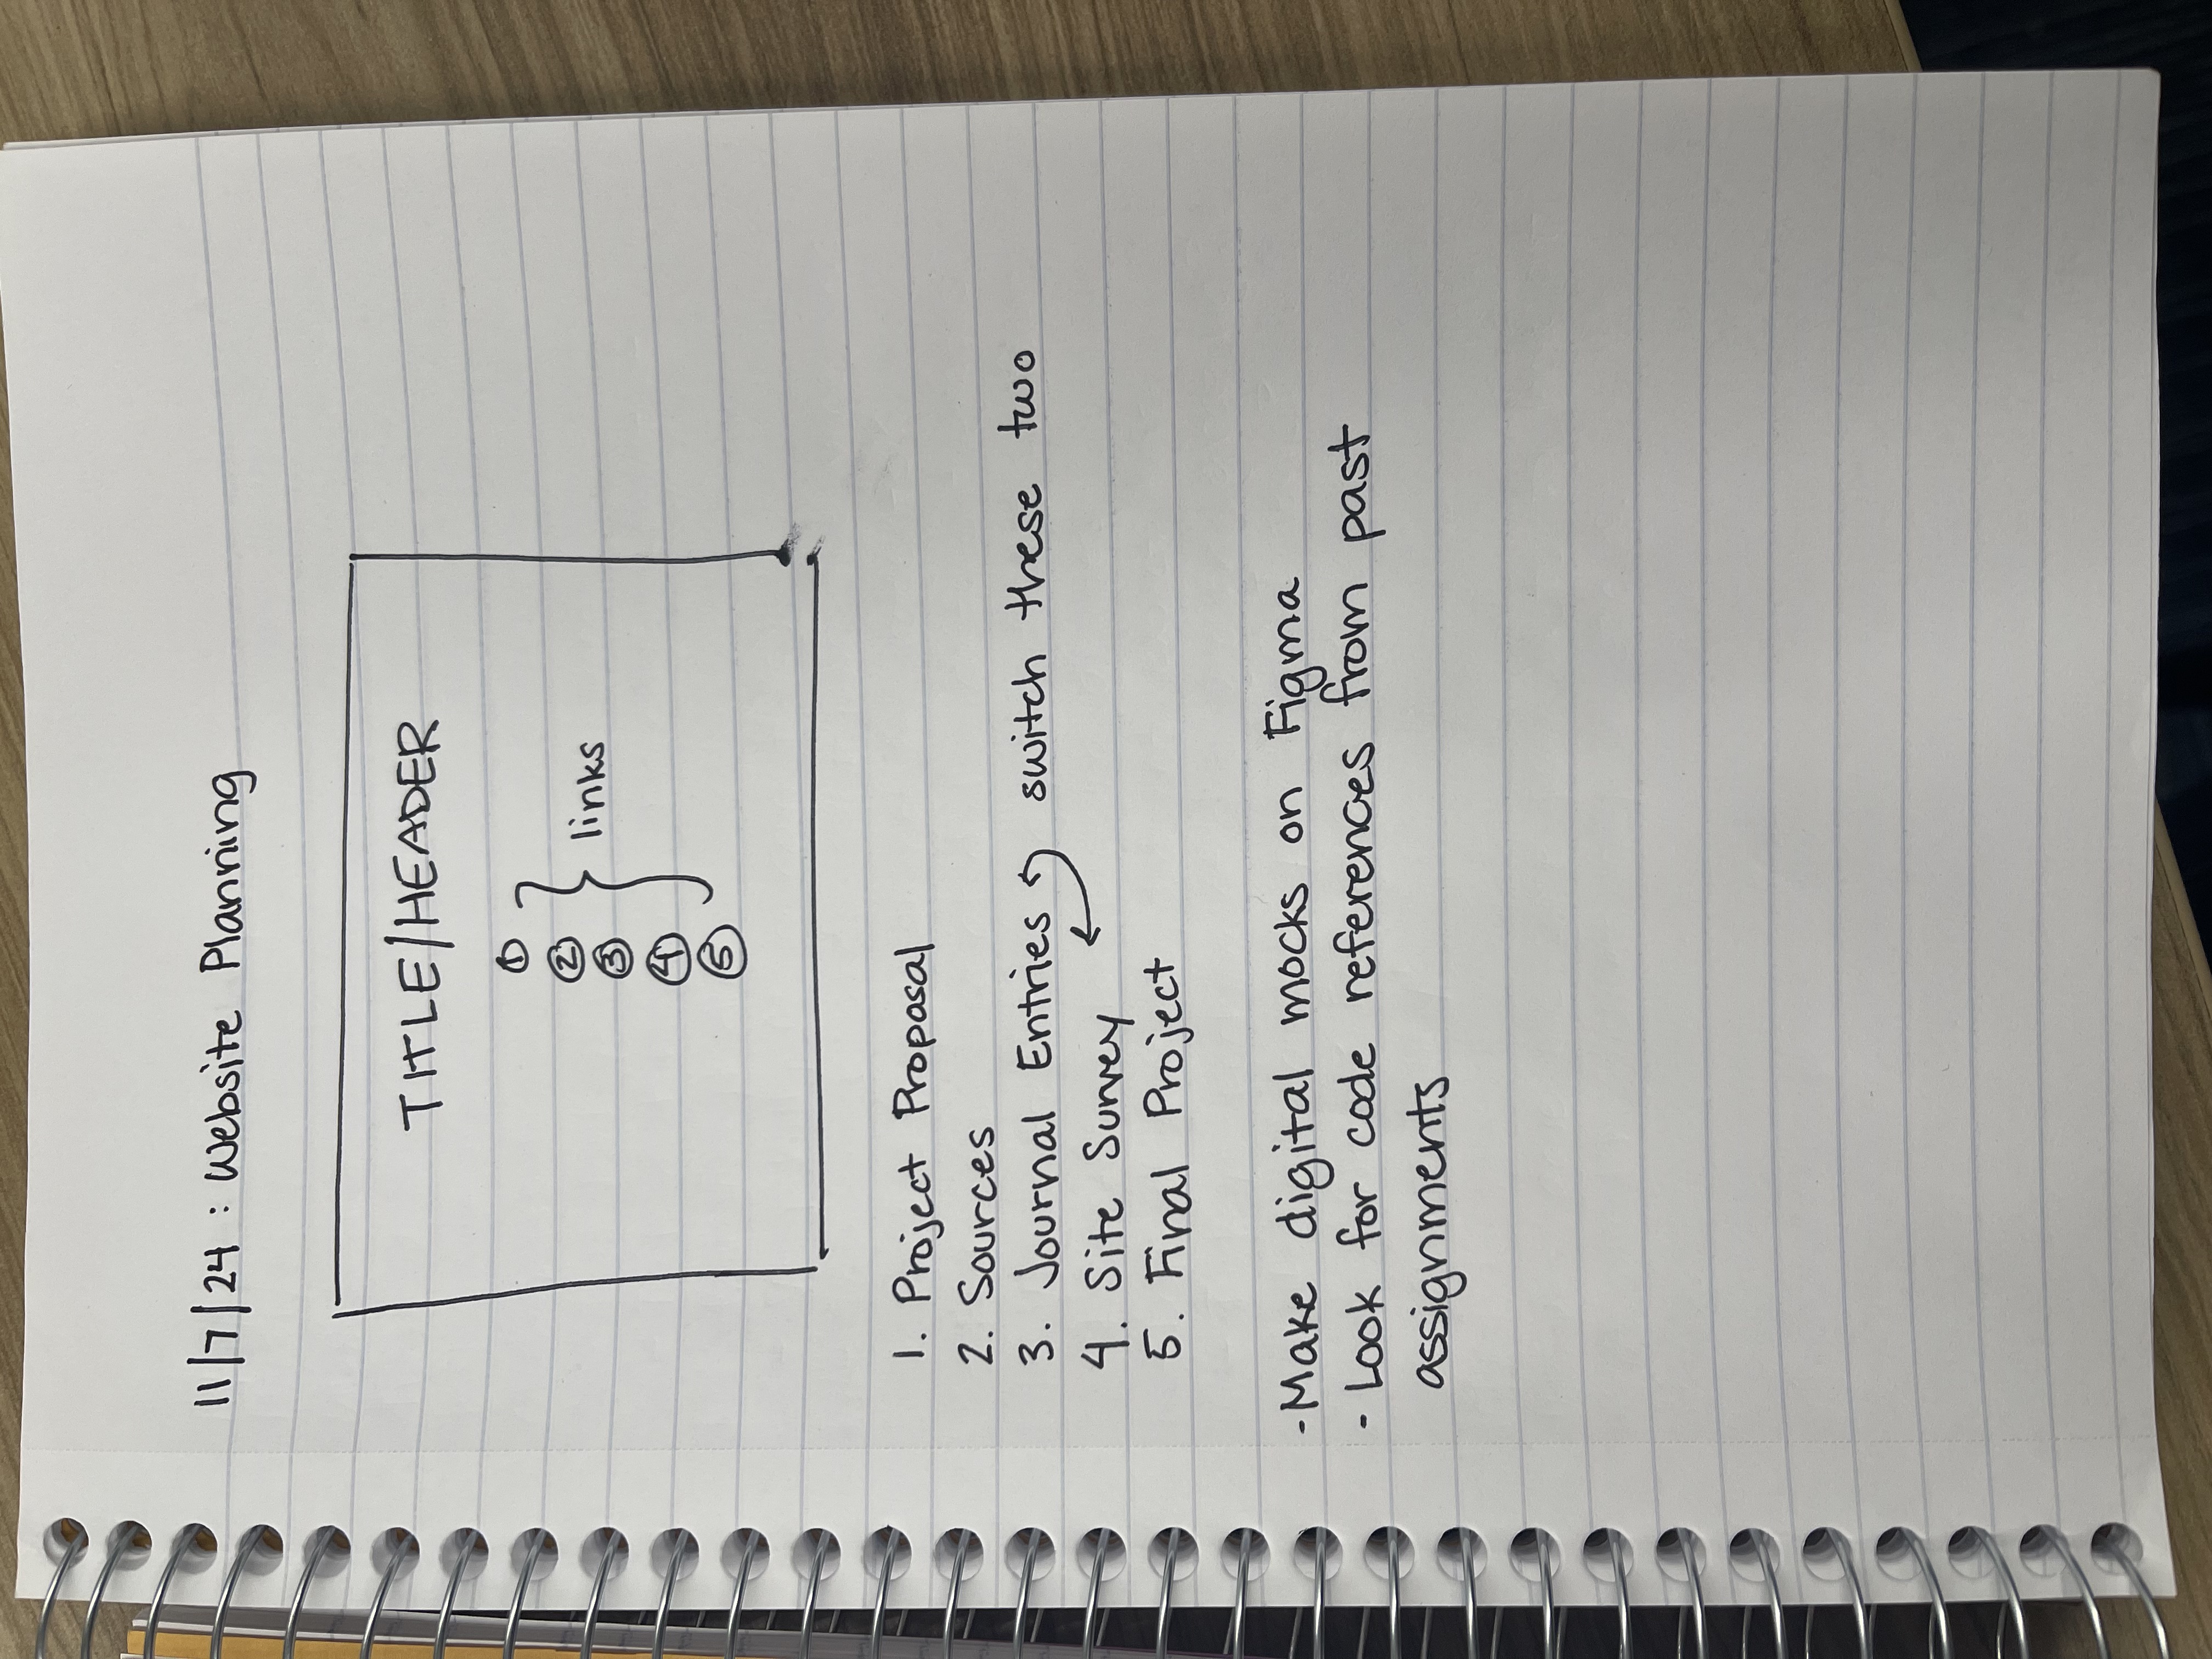 11/7/24 : Website Planning
TITLE/HEADER
1
2
3
4
5
links
1. Project Proposal
2. Sources
3. Journal Entries switch these two
4. Site Survey
5. Final Project
-Make digital mocks on Figma
- Look for code references from past
assignments